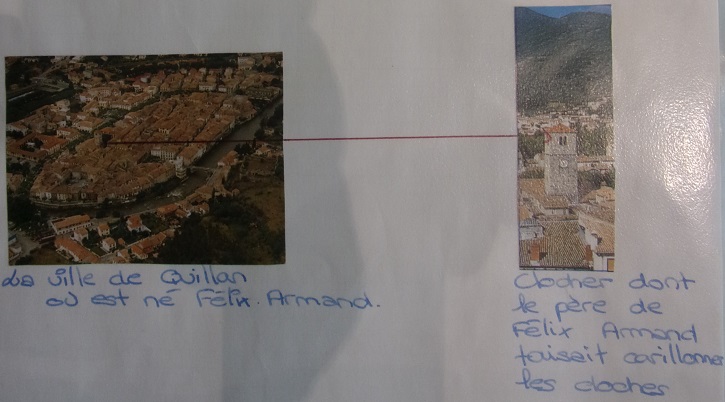 La ville de Quillan
où est né Félix. Armand.
Clocher dont
le père de
Félix Armand
faisait carillonner
les cloches